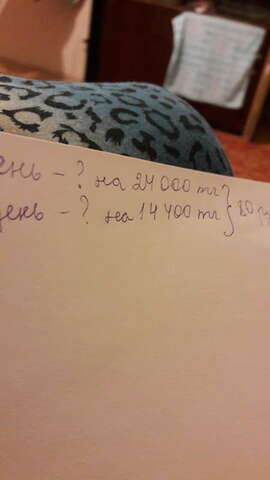 ень - ? на 24 000 тг } 80
день - ? на 14 400 тг